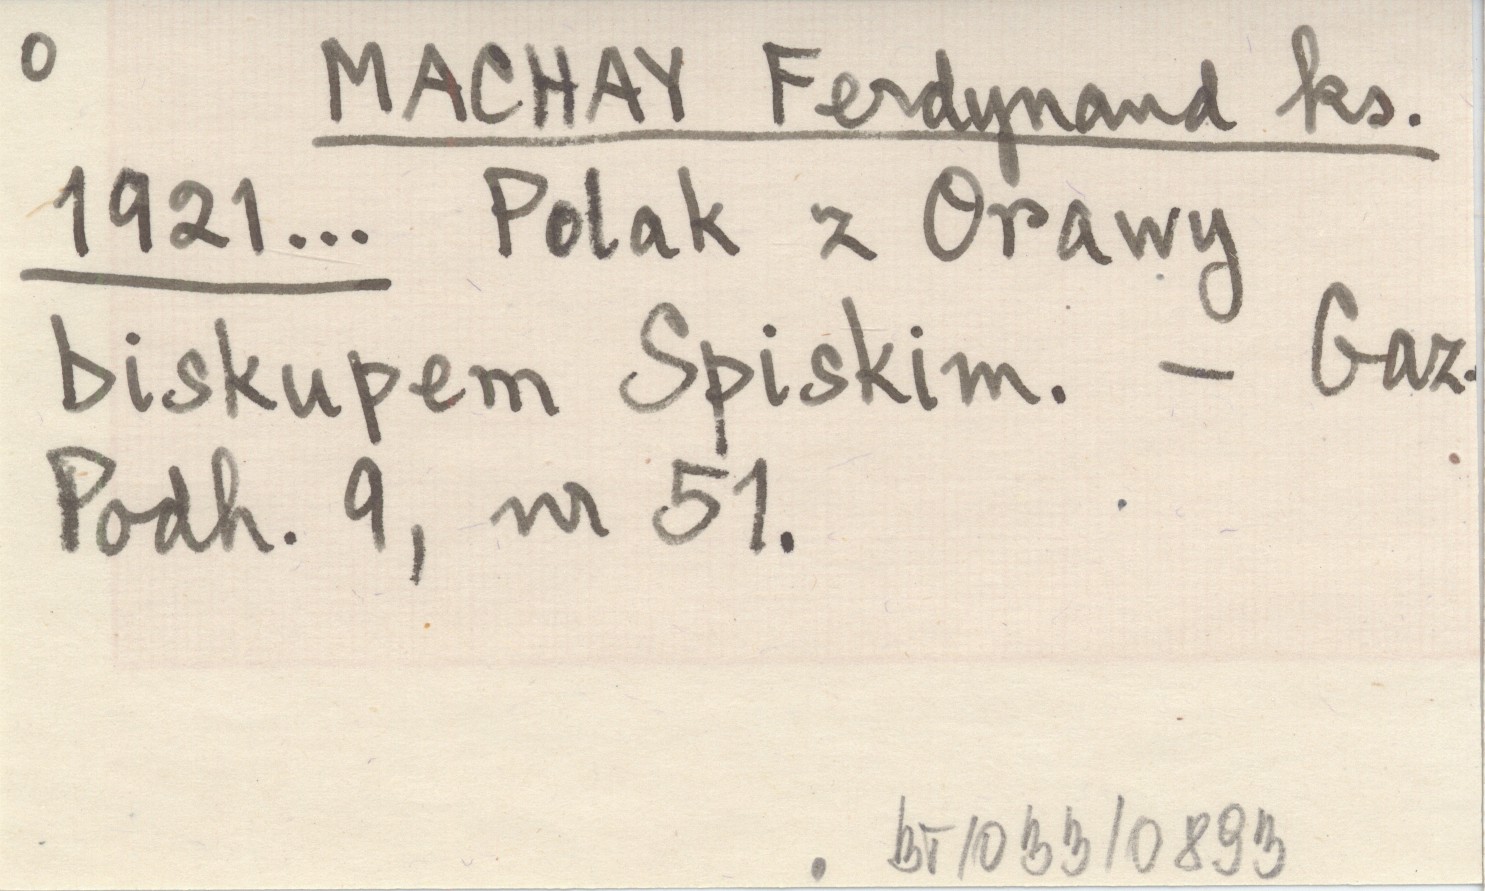 o MACHAY Ferdynand ks.
1921... Polak z Orawy
biskupem Spiskim. – Gaz.
Podh. 9, nr 51.
BT/033/0893